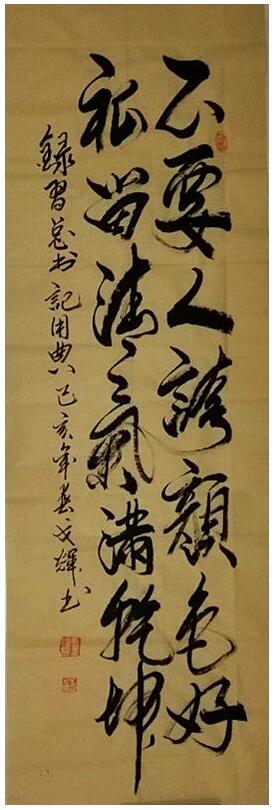 不要人誇顏色好
祇留清氣滿乾坤
錄習总书記用典 己亥年春文輝书